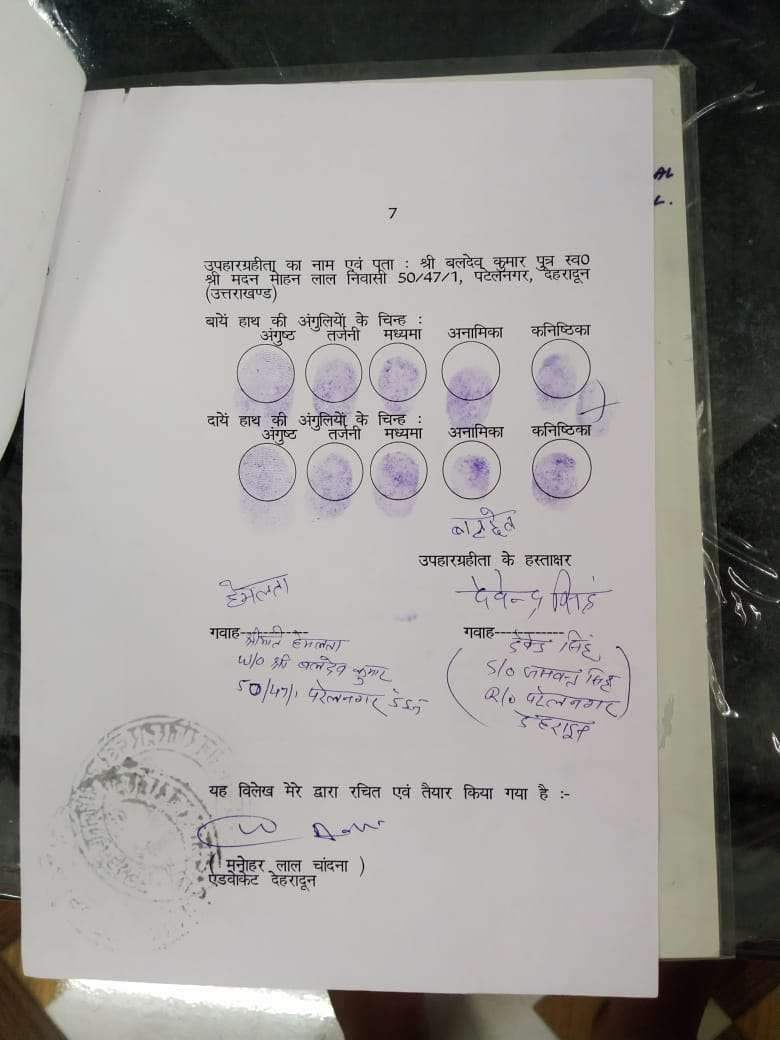 AL
L.
7
उपहारग्रहीता का नाम एवं पता : श्री बलदेव कुमार पुत्र स्व0
श्री मदन मोहन लाल निवासी 50/47/1, पटेलनगर, देहरादून
(उत्तराखण्ड)
बायें हाथ की अंगुलियों के चिन्ह :
अंगुष्ठ तर्जनी मध्यमा अनामिका कनिष्ठिका
दायें हाथ की अंगुलियों के चिन्ह :
अंगुष्ठ तर्जनी मध्यमा अनामिका कनिष्ठिका
उपहारग्रहीता के हस्ताक्षर
हेमलता देवेन्द्र सिंह
गवाह------------ गवाह------------
श्रीमति हेमलता
W/o श्री बलदेव कुमार
50/47/1 पटेलनगर
सिंह
S/o जसवन्त सिंह
R/o पटेलनगर
देहरादून
यह विलेख मेरे द्वारा रचित एवं तैयार किया गया है :-
( मनोहर लाल चांदना )
एडवोकेट देहरादून